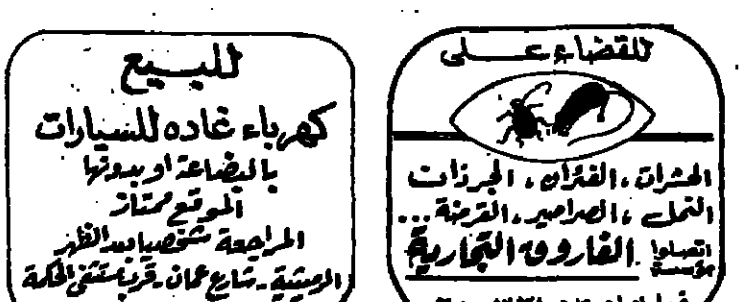 للقضاء على
الحشرات، الفئران، الجرذات
النمل، الصراصير، القرضة...
اتصلوا
بمؤسسة الفاروق التجارية
للبيع
كهرباء غاده للسيارات
بالبضاعة او بدونها
الموقع ممتاز
المراجعة شخصيا بعد الظهر
شارع عمان - قرب مستشفى الحكمة